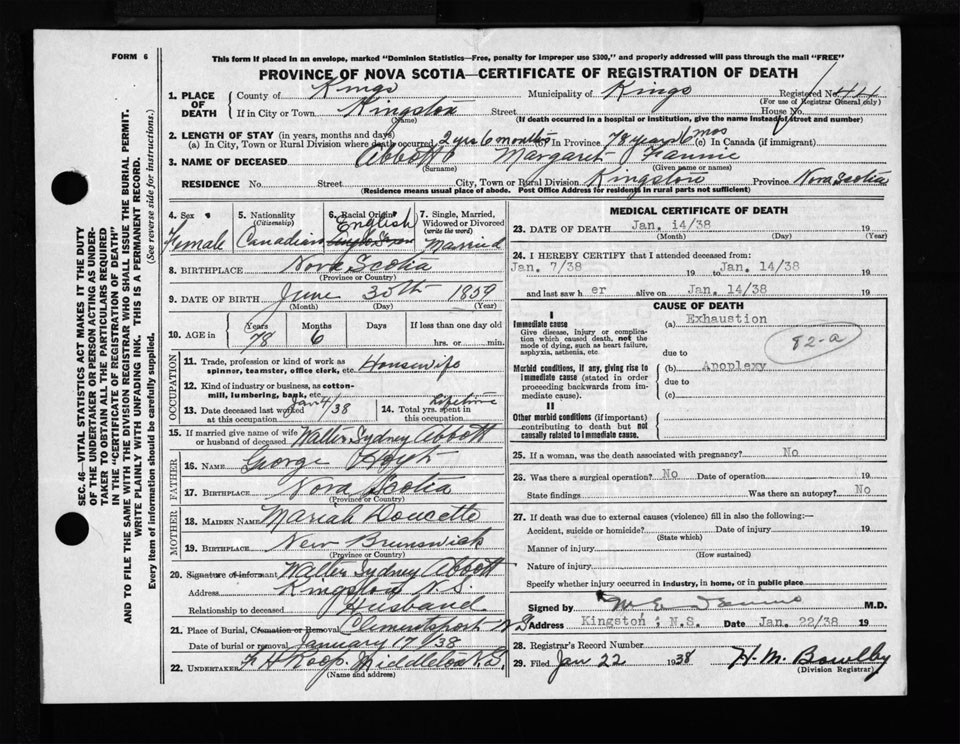 FORM 6
This form if placed in an envelope, marked "Dominion Statistics—Free, penalty for improper use $300," and properly addressed will pass through the mail "FREE"
PROVINCE OF NOVA SCOTIA—CERTIFICATE OF REGISTRATION OF DEATH
1. PLACE OF DEATH County of Kings Municipality of Kings Registered No. 44
(For use of Registrar General only)
If in City or Town Kingston Street House No.
(Name) (If death occurred in a hospital or institution, give the name instead of street and number)
2. LENGTH OF STAY (in years, months and days)
(a) In City, Town or Rural Division where death occurred 2 yrs 6 months (b) In Province 78 years 6 mos (c) In Canada (if immigrant)
3. NAME OF DECEASED Abbott Margaret Fannie
(Surname) (Given name or names)
RESIDENCE No. Street City, Town or Rural Division Kingston Province Nova Scotia
(Residence means usual place of abode. Post Office Address for Residents in rural parts not sufficient)
4. Sex Female
5. Nationality (Citizenship) Canadian
6. Racial Origin English
7. Single, Married, Widowed or Divorced (write the word) Married
8. BIRTHPLACE Nova Scotia
(Province or Country)
9. DATE OF BIRTH June 30th 1859
(Month) (Day) (Year)
10. AGE in Years 78 Months 6 Days If less than one day old hrs. or min.
OCCUPATION
11. Trade, profession or kind of work as spinner, teamster, office clerk, etc. Housewife
12. Kind of industry or business, as cotton-mill, lumbering, bank, etc.
13. Date deceased last worked at this occupation Jan 4/38
14. Total yrs. spent in this occupation Lifetime
15. If married give name of wife or husband of deceased Walter Sydney Abbott
FATHER
16. NAME George Hoyt
17. BIRTHPLACE Nova Scotia
(Province or Country)
MOTHER
18. MAIDEN NAME Mariah Doucette
19. BIRTHPLACE New Brunswick
(Province or Country)
20. Signature of informant Walter Sydney Abbott
Address Kingston N.S.
Relationship to deceased Husband
21. Place of Burial, Cremation or Removal Clementsport N S
Date of burial or removal January 17/38
22. UNDERTAKER F H Roop Middleton N.S.
(Name and address)
MEDICAL CERTIFICATE OF DEATH
23. DATE OF DEATH Jan. 14/38
(Month) (Day) (Year)
24. I HEREBY CERTIFY that I attended deceased from:
Jan. 7/38 19 to Jan. 14/38 19
and last saw her alive on Jan. 14/38 19
CAUSE OF DEATH
I
Immediate cause (a) Exhaustion
Give disease, injury or complication which caused death, not the mode of dying, such as heart failure, asphyxia, asthenia, etc.
due to
82-a
Morbid conditions, if any, giving rise to immediate cause (stated in order proceeding backwards from immediate cause).
(b) Apoplexy
due to
(c)
II
Other morbid conditions (if important) contributing to death but not causally related to immediate cause.
25. If a woman, was the death associated with pregnancy? No
26. Was there a surgical operation? No Date of operation 19
State findings Was there an autopsy? No
27. If death was due to external causes (violence) fill in also the following:—
Accident, suicide or homicide? Date of injury 19
(State which)
Manner of injury
(How sustained)
Nature of injury
Specify whether injury occurred in industry, in home, or in public place
Signed by M.D.
Address Kingston, N.S. Date Jan. 22/38 19
28. Registrar's Record Number
29. Filed Jan 22 1938 H. M. Bowlby
(Division Registrar)
SEC. 46—VITAL STATISTICS ACT MAKES IT THE DUTY
OF THE UNDERTAKER OR PERSON ACTING AS UNDERTAKER TO OBTAIN ALL THE PARTICULARS REQUIRED
IN THE "CERTIFICATE OF REGISTRATION OF DEATH"
AND TO FILE THE SAME WITH THE DIVISION REGISTRAR WHO SHALL ISSUE THE BURIAL PERMIT.
WRITE PLAINLY WITH UNFADING INK. THIS IS A PERMANENT RECORD.
Every item of information should be carefully supplied. (See reverse side for instructions.)